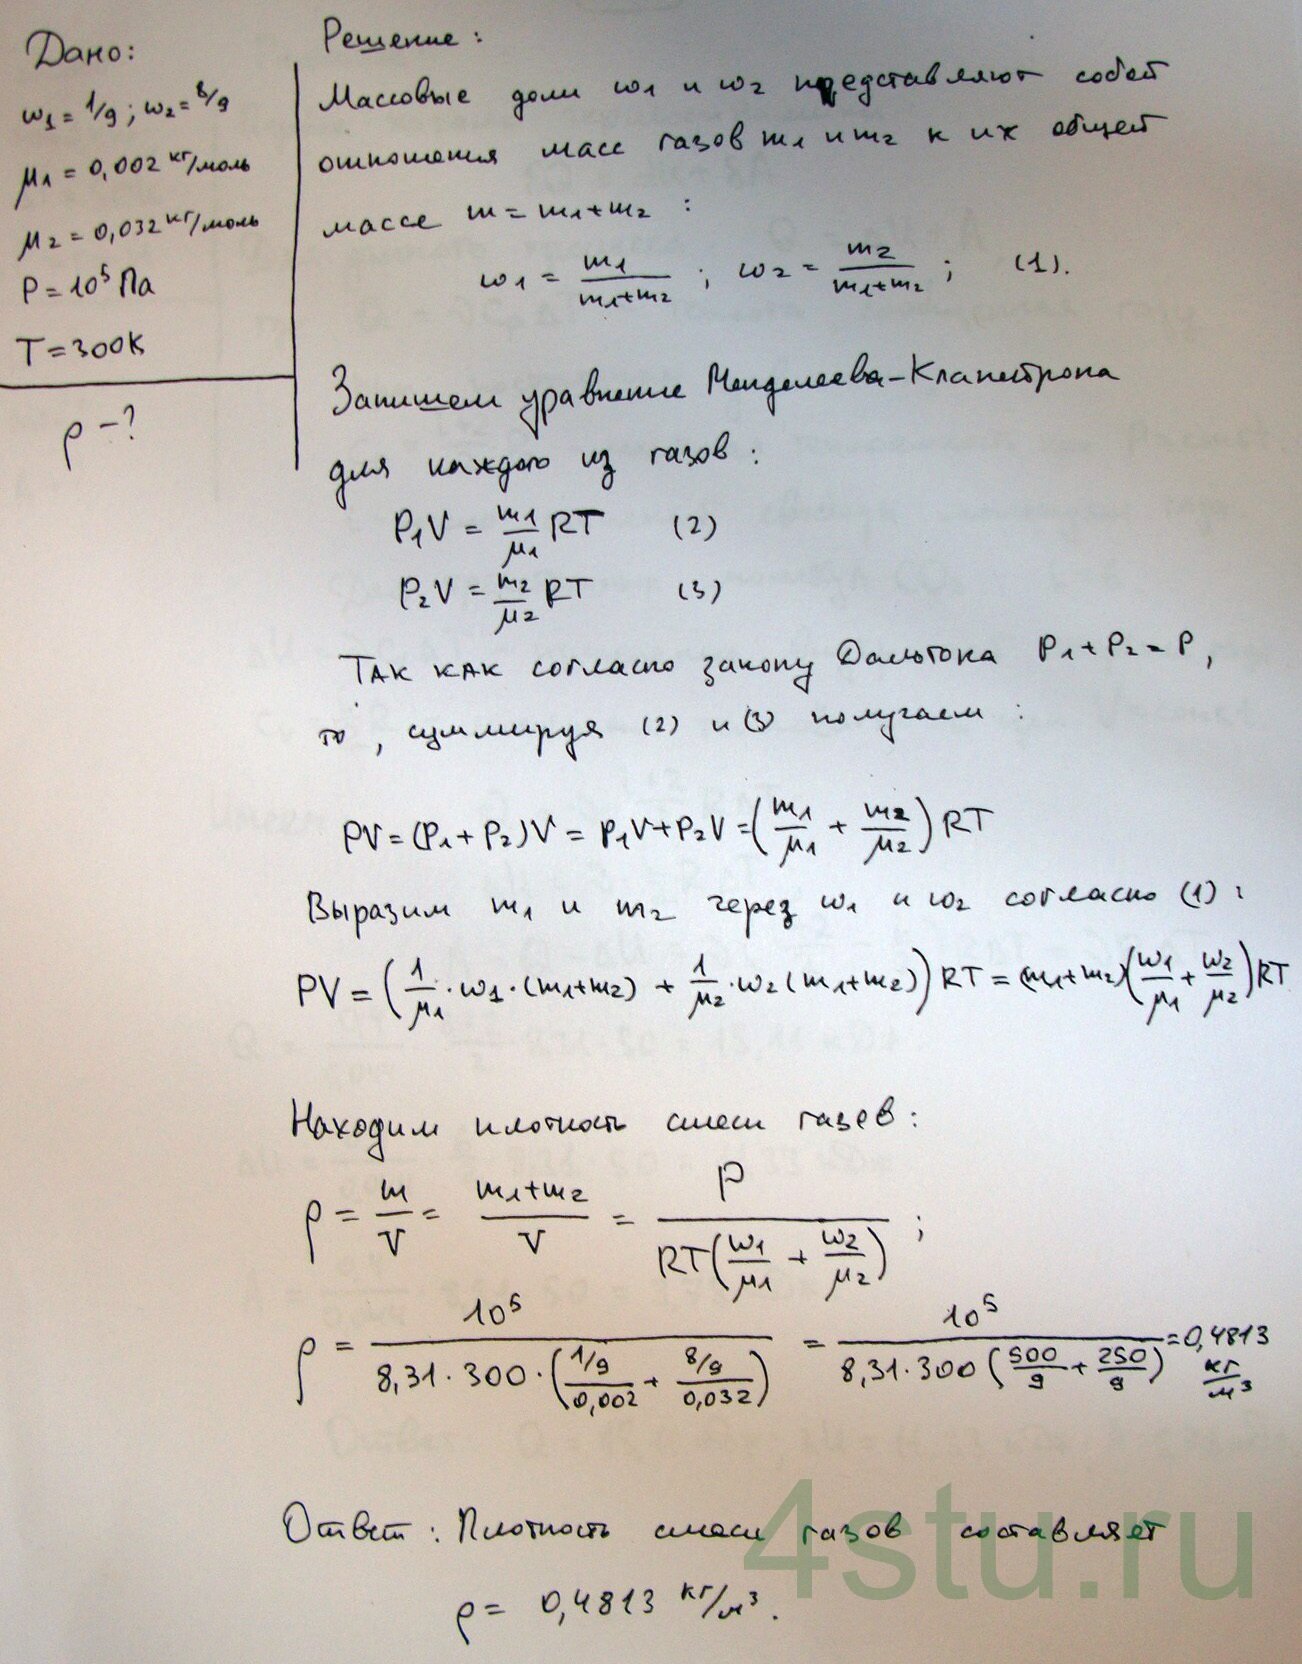 Дано:
ω1 = 1/9 ; ω2 = 8/9
μ1 = 0,002 кг/моль
μ2 = 0,032 кг/моль
P = 10⁵ Па
T = 300К
ρ - ?
Решение :
Массовые доли ω1 и ω2 представляют собой
отношения масс газов m1 и m2 к их общей
массе m = m1+m2 :
ω1 = m1/(m1+m2) ; ω2 = m2/(m1+m2) ; (1).
Запишем уравнение Менделеева-Клапейрона
для каждого из газов :
P1V = m1/μ1 RT (2)
P2V = m2/μ2 RT (3)
Так как согласно закону Дальтона P1+P2=P,
то , суммируя (2) и (3) получаем :
PV = (P1 + P2)V = P1V+P2V = (m1/μ1 + m2/μ2) RT
Выразим m1 и m2 через ω1 и ω2 согласно (1) :
PV = (1/μ1 · ω1 · (m1+m2) + 1/μ2 · ω2 (m1+m2)) RT = (m1+m2)(ω1/μ1 + ω2/μ2)RT
Находим плотность смеси газов :
ρ = m/V = (m1+m2)/V = P/(RT(ω1/μ1 + ω2/μ2)) ;
ρ = 10⁵/(8,31 · 300 · ((1/9)/0,002 + (8/9)/0,032)) = 10⁵/(8,31 · 300 (500/9 + 250/9)) = 0,4813 кг/м³
Ответ : Плотность смеси газов составляет
ρ = 0,4813 кг/м³.
4stu.ru